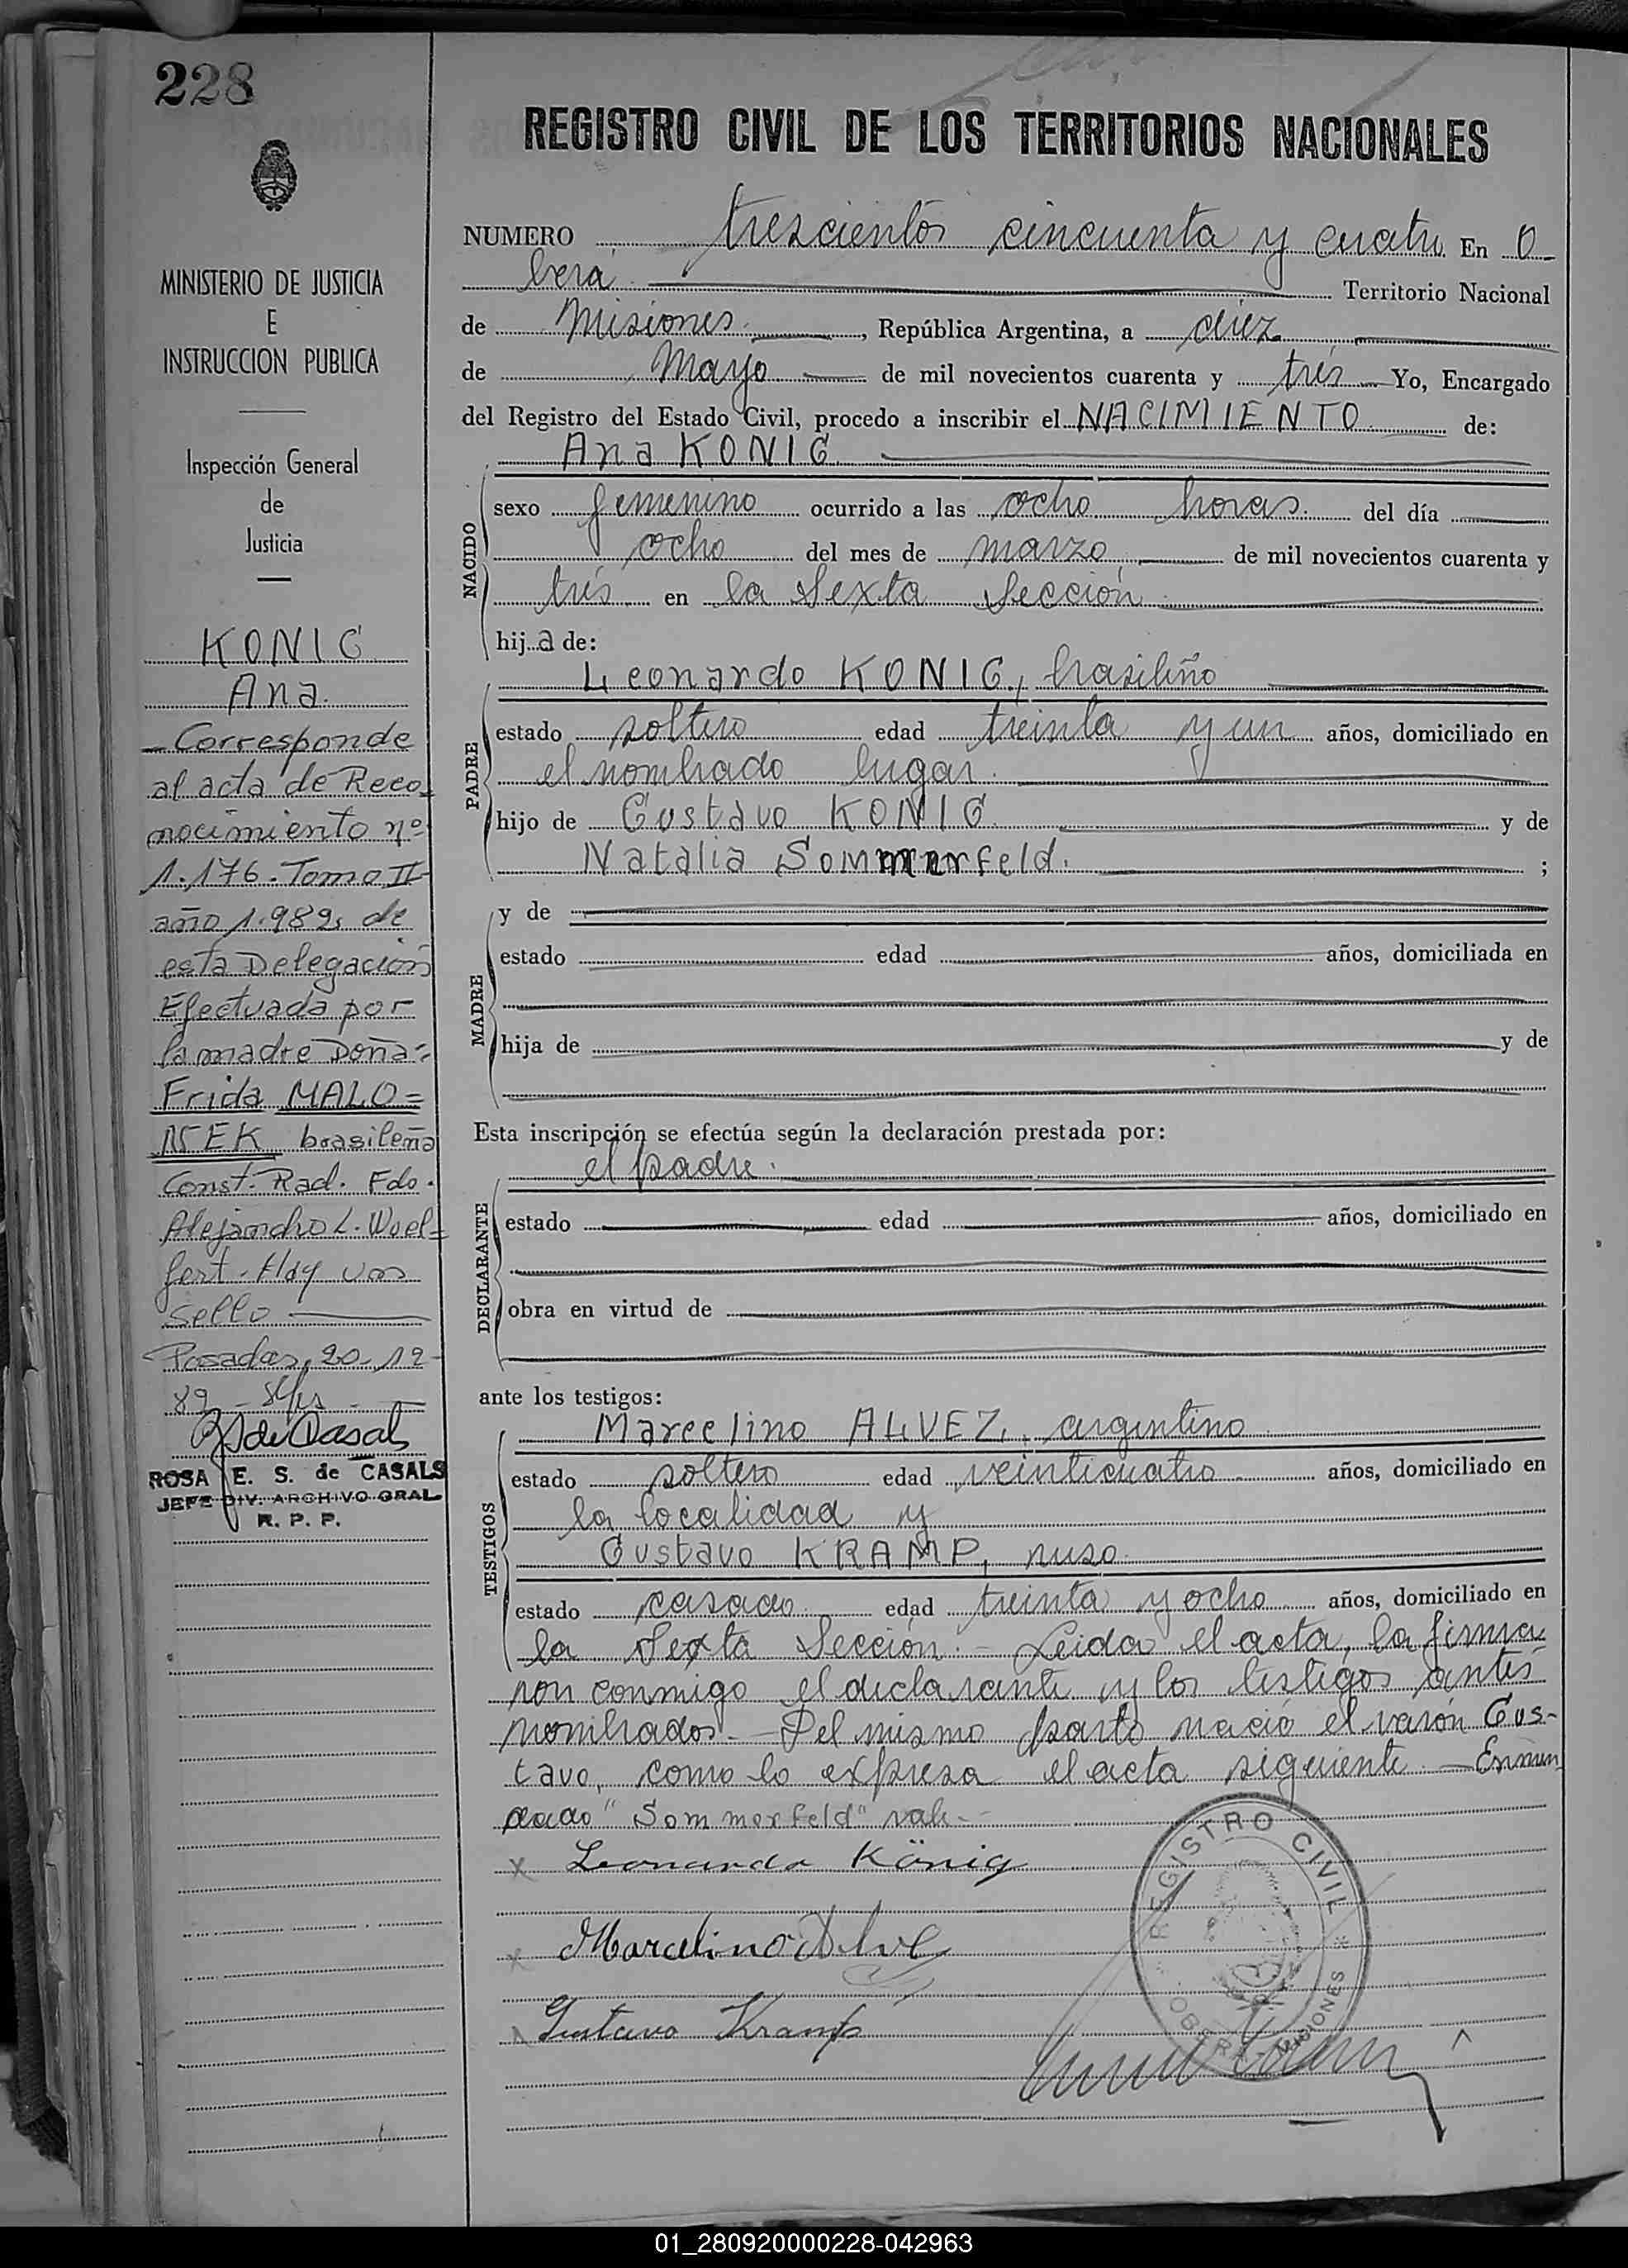 228
REGISTRO CIVIL DE LOS TERRITORIOS NACIONALES
MINISTERIO DE JUSTICIA
E
INSTRUCCION PUBLICA
Inspección General
de
Justicia
KONIG
Ana.
Corresponde
al acta de Reco=
nocimiento nº
1.176. Tomo II
año 1.989, de
esta Delegación
Efectuada por
la madre Doña:
Frida MALO=
NEK brasileña
Const. Rad. Fdo.
Alejandro L. Woel=
fert. Hay un
sello
Posadas, 20-12-
89
ROSA E. S. de CASALS
JEFE DIV. ARCHIVO GRAL
R. P. P.
NUMERO trescientos cincuenta y cuatro En O-
berá Territorio Nacional
de Misiones, República Argentina, a diez
de Mayo de mil novecientos cuarenta y tres Yo, Encargado
del Registro del Estado Civil, procedo a inscribir el NACIMIENTO de:
Ana KONIG
NACIDO
sexo femenino ocurrido a las ocho horas. del día
ocho del mes de marzo de mil novecientos cuarenta y
tres en la Sexta Sección
hija de:
PADRE
Leonardo KONIG, brasileño
estado soltero edad treinta y un años, domiciliado en
el nombrado lugar.
hijo de Gustavo KONIG y de
Natalia Sommerfeld. ;
MADRE
y de
estado edad años, domiciliada en
hija de y de
Esta inscripción se efectúa según la declaración prestada por:
el padre.
DECLARANTE
estado edad años, domiciliado en
obra en virtud de
ante los testigos:
TESTIGOS
Marcelino ALVEZ, argentino
estado soltero edad veinticuatro años, domiciliado en
la localidad y
Gustavo KRAMP, ruso
estado casado edad treinta y ocho años, domiciliado en
la Sexta Sección.- Leida el acta, la firma
ron conmigo el declarante y los testigos antes
nombrados.- Del mismo parto nació el varón Gus-
tavo, como lo expresa el acta siguiente.- Enmen
dado "Sommerfeld" vale-
x Leonardo König
x Marcelino Alve
Gustavo Kramp
REGISTRO CIVIL
OBERA - MISIONES
01_280920000228-042963